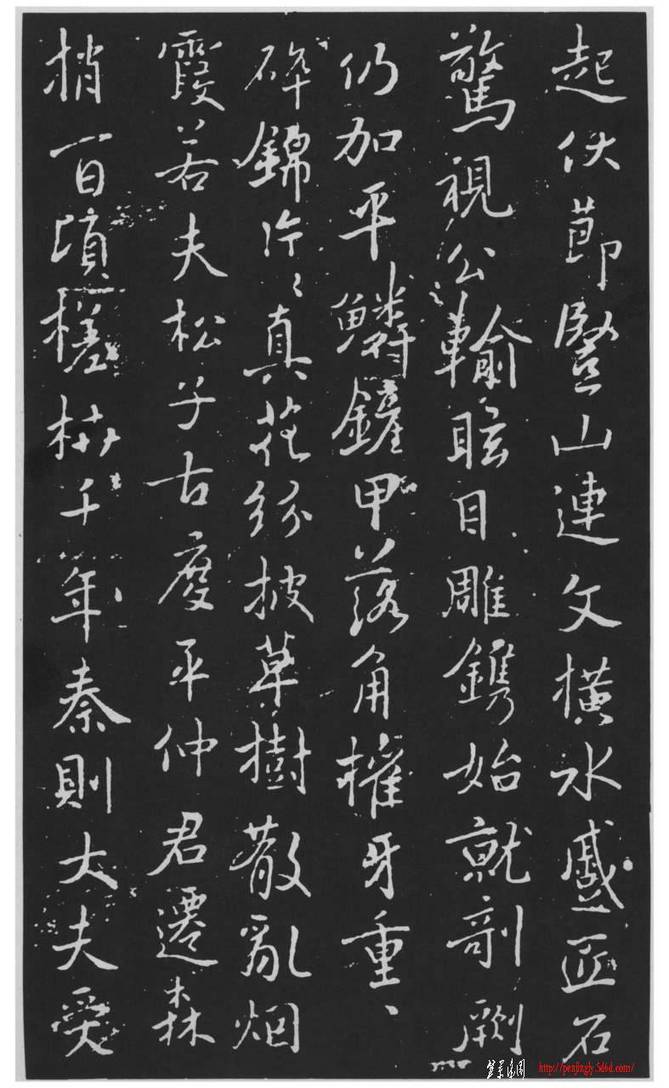 起伏節豎山連文橫水蹙匠石
驚視公輸眩目雕鐫始就剞劂
仍加平鱗鏟甲落角摧牙重、
碎錦片〻真花紛披草樹散亂烟
霞若夫松子古度平仲君遷森
梢百頃槎枿千年秦則大夫受
http://penjingly.5d6d.com/